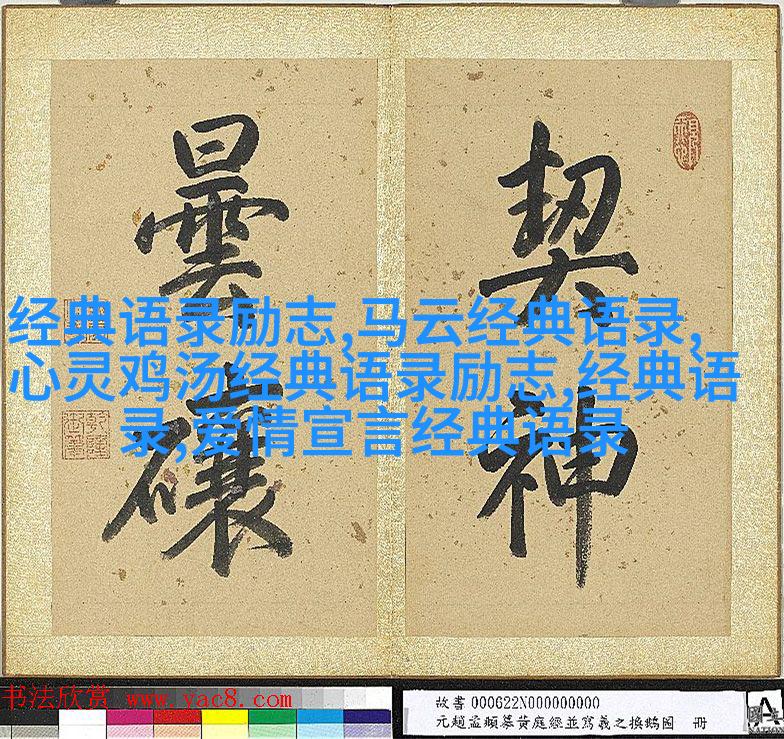 契神
曇礳
经典语录励志,马云经典语录,
心灵鸡汤经典语录励志,经典语
录,爱情宣言经典语录
书法欣赏 www.yac8.com
故書000622N000000000
元趙孟頫纂黃庭經並寫羲之換鵝圖 冊